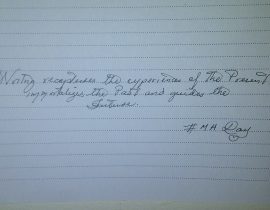 Writing recaptures the experiences of the Present
immortalizes the Past and guides the
Future.
# MA Day